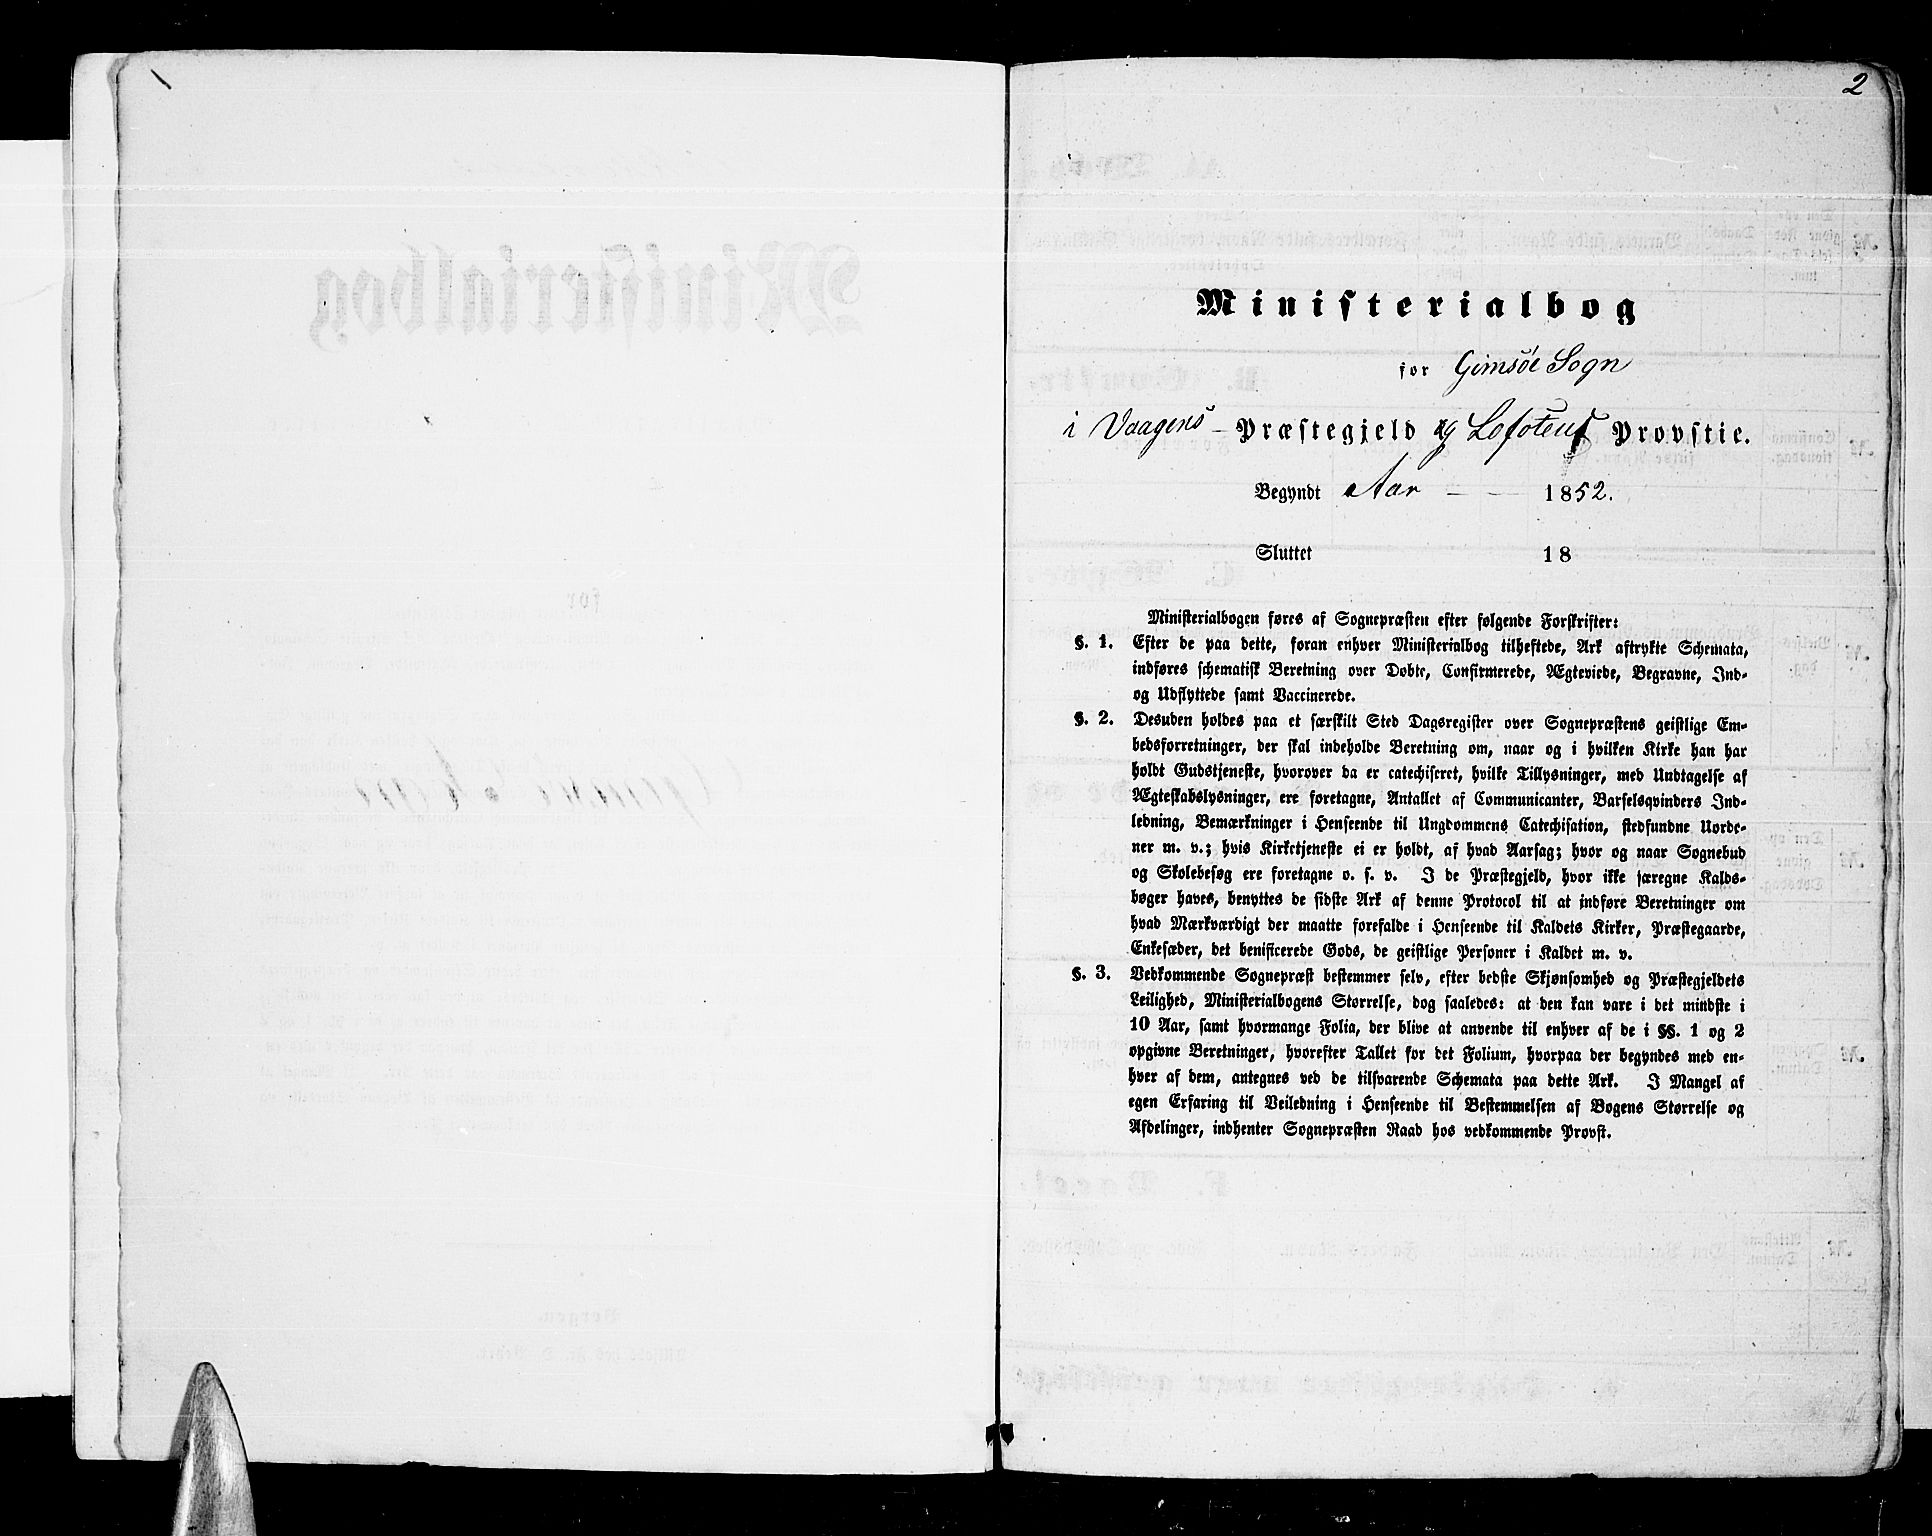 2
Ministerialbog
for Gimsøe Sogn
i Vaagens Præstegjeld og Lofotens Provstie.
Begyndt Aar 1852.
Sluttet 18
Ministerialbogen føres af Sognepræsten efter følgende Forskrifter:
§. 1. Efter de paa dette, foran enhver Ministerialbog tilheftede, Ark aftrykte Schemata,
indføres schematisk Beretning over Døbte, Confirmerede, Ægteviede, Begravne, Ind-
og Udflyttede samt Vaccinerede.
§. 2. Desuden holdes paa et særskilt Sted Dagsregister over Sognepræstens geistlige Em-
bedsforretninger, der skal indeholde Beretning om, naar og i hvilken Kirke han har
holdt Gudstjeneste, hvorover da er catechiseret, hvilke Tillysninger, med Undtagelse af
Ægteskabslysninger, ere foretagne, Antallet af Communicanter, Barselqvinders Ind-
ledning, Bemærkninger i Henseende til Ungdommens Catechisation, stedfundne Uorde-
ner m. v.; hvis Kirketjeneste ei er holdt, af hvad Aarsag; hvor og naar Sognebud
og Skolebesøg ere foretagne o. s. v. I de Præstegjeld, hvor ikke særegne Kalds-
bøger haves, benyttes de sidste Ark af denne Protocol til at indføre Beretninger om
hvad Mærkværdigt der maatte forefalde i Henseende til Kaldets Kirker, Præstegaarde,
Enkesæder, det benificerede Gods, de geistlige Personer i Kaldet m. v.
§. 3. Vedkommende Sognepræst bestemmer selv, efter bedste Skjønsomhed og Præstegjeldets
Leilighed, Ministerialbogens Størrelse, dog saaledes: at den kan vare i det mindste i
10 Aar, samt hvormange Folia, der blive at anvende til enhver af de i §§. 1 og 2
opgivne Beretninger, hvorefter Tallet for det Folium, hvorpaa der begyndes med en-
hver af dem, antegnes ved de tilsvarende Schemata paa dette Ark. I Mangel af
egen Erfaring til Veiledning i Henseende til Bestemmelsen af Bogens Størrelse og
Afdelinger, indhenter Sognepræsten Raad hos vedkommende Provst.